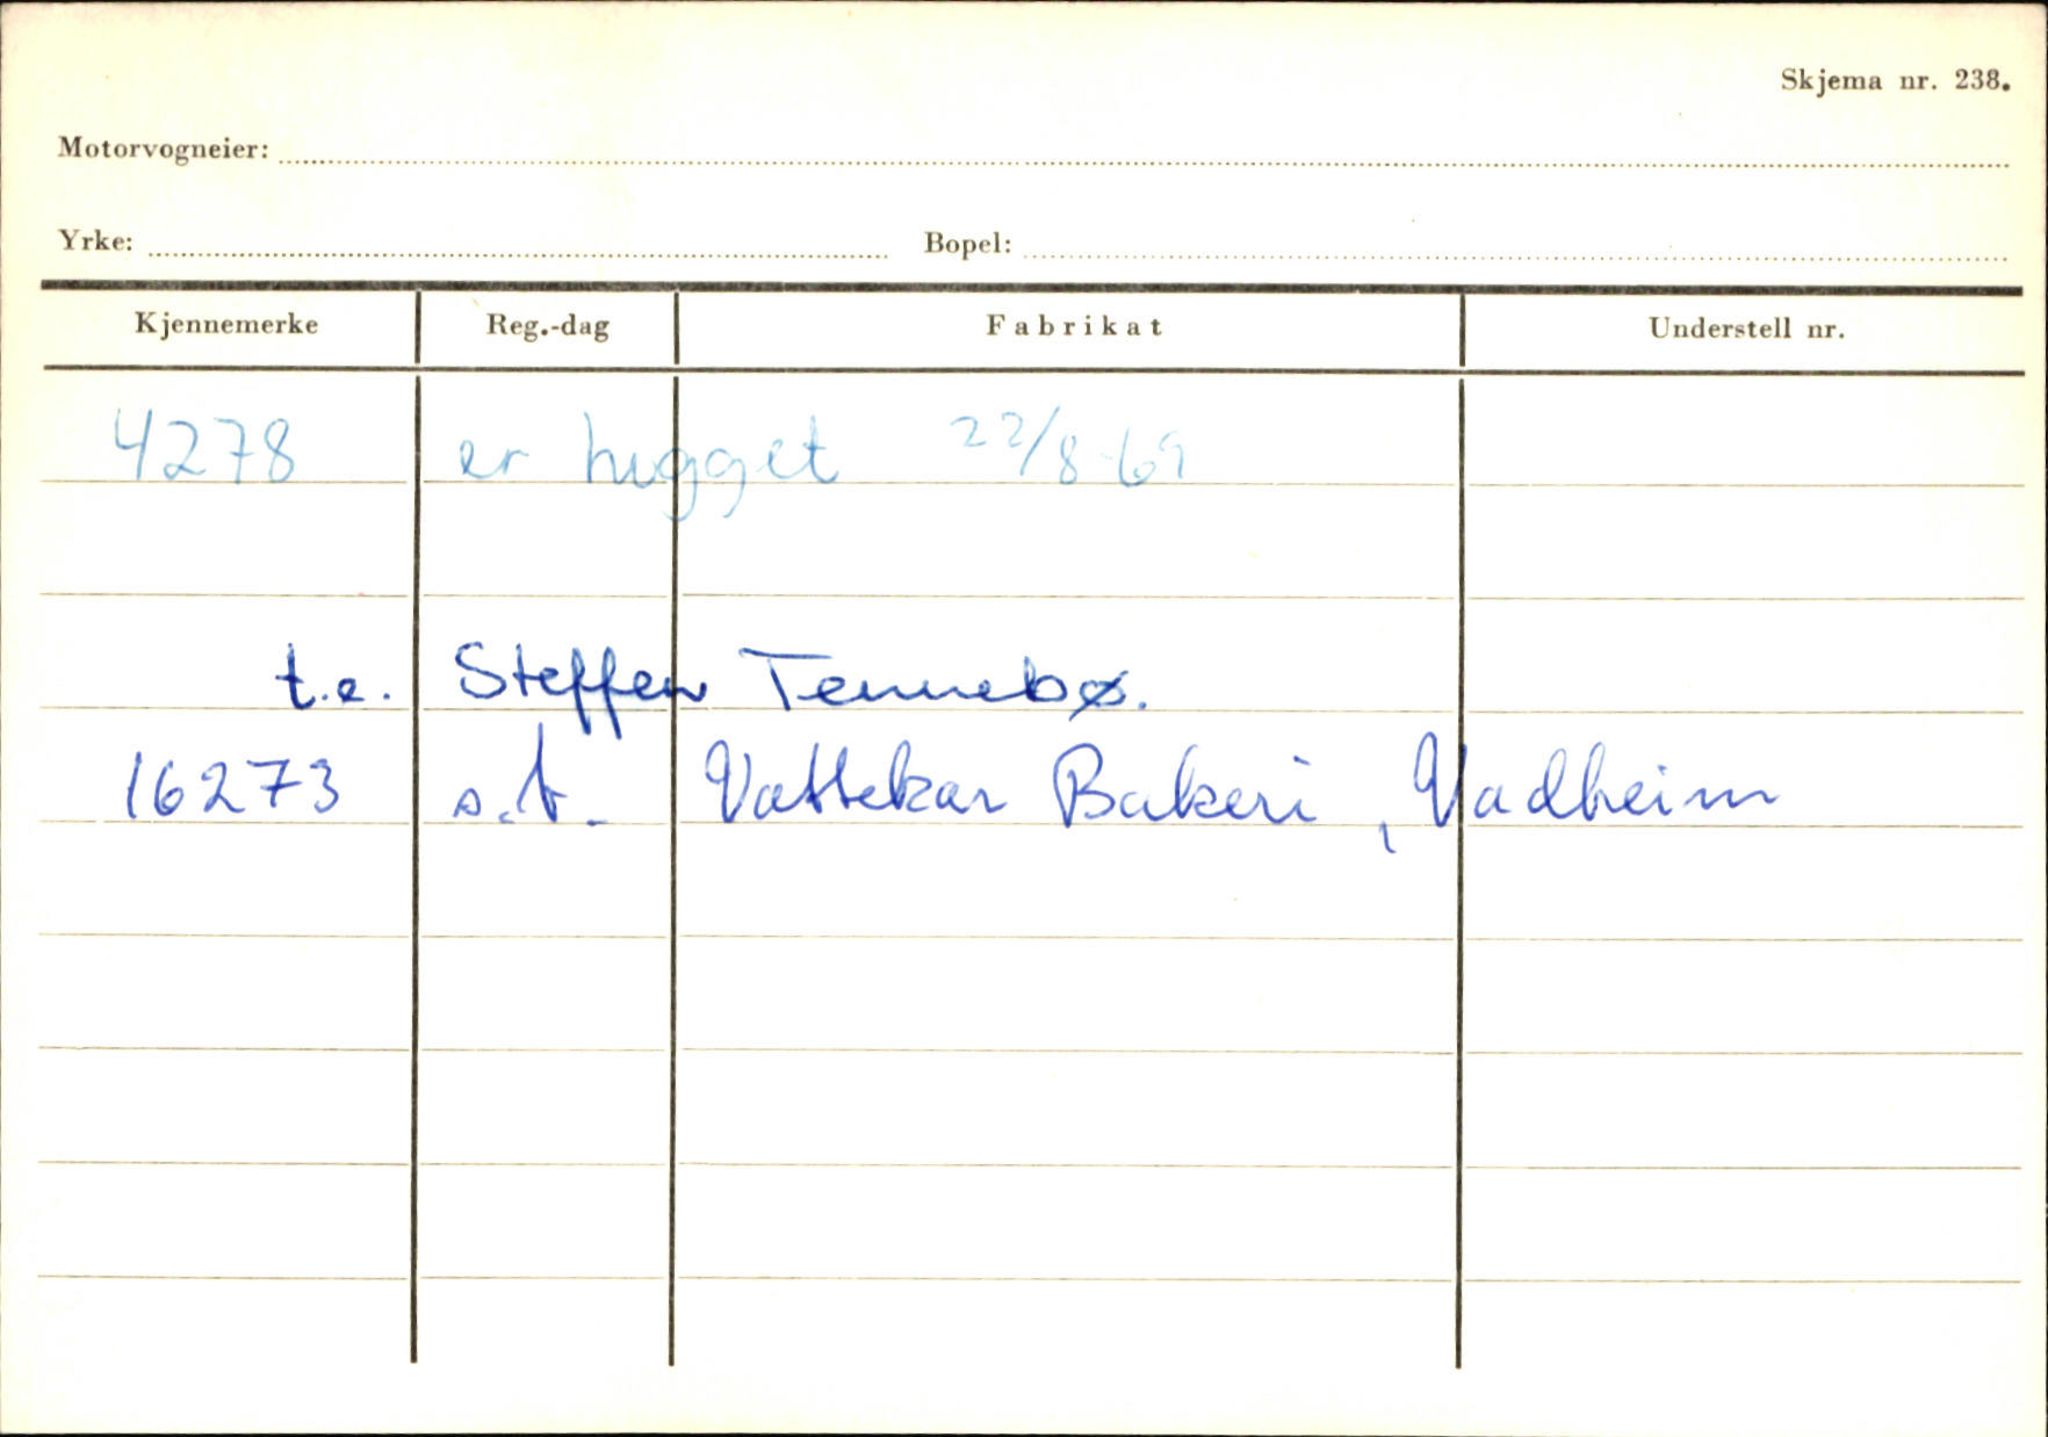 Skjema nr. 238.
Motorvogneier:
Yrke: Bopel:
Kjennemerke Reg.-dag Fabrikat Understell nr.
4278 er hugget 22/8-69
t.e. Steffen Tennebø.
16273 s.t. Vattekar Bakeri, Vadheim